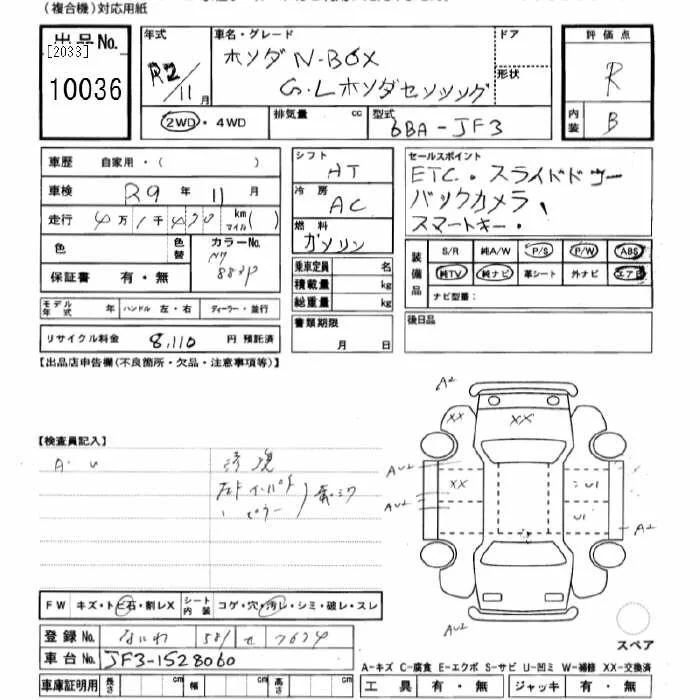 (複合機)対応用紙
出品No.
[2033]
10036
年式
R2/11月
車名・グレード
ホンダ N-BOX
G・Lホンダセンシング
ドア
形状
評価点
R
内装
B
2WD・4WD
排気量 cc
型式
6BA-JF3
車歴 自家用・( )
車検 R9年 11月
走行 4万1千400 km( ) マイル
色
色替
カラーNo.
NH
883P
保証書 有・無
モデル年式 年
ハンドル 左・右
ディーラー・並行
リサイクル料金 8,110 円 預託済
シフト
AT
冷房
AC
燃料
ガソリン
乗車定員 名
積載量 kg
総重量 kg
書類期限
月 日
セールスポイント
ETC・スライドドアー
バックカメラ
スマートキー・
装備品
S/R 純A/W P/S P/W ABS
純TV 純ナビ 革シート 外ナビ エアB
ナビ型番:
後日品
【出品店申告欄(不良箇所・欠品・注意事項等)】
【検査員記入】
A・U
A2
XX
XX
AU2
XX
UI
AU2
UI
A2
AU2
スペア
FW キズ・トビ石・割レX
シート内装 コゲ・穴・汚レ・シミ・破レ・スレ
登録No. なにわ 581 せ 7624
車台No. JF3-1528060
車庫証明用 長さ cm 幅 cm 高さ cm
A-キズ C-腐食 E-エクボ S-サビ U-凹ミ W-補修 XX-交換済
工具 有・無 ジャッキ 有・無